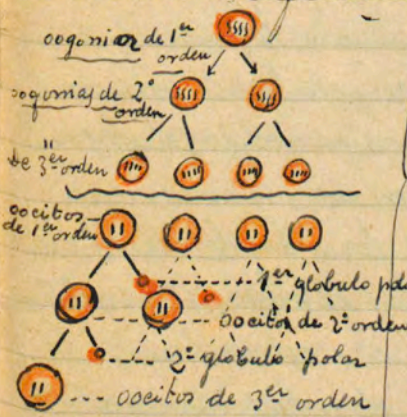 oogonias de 1er
orden
oogonias de 2º
orden
De 3er orden
oocitos
de 1er orden
1er globulo pola
oocitos de 2º orden
2º globulo polar
oocitos de 3er orden